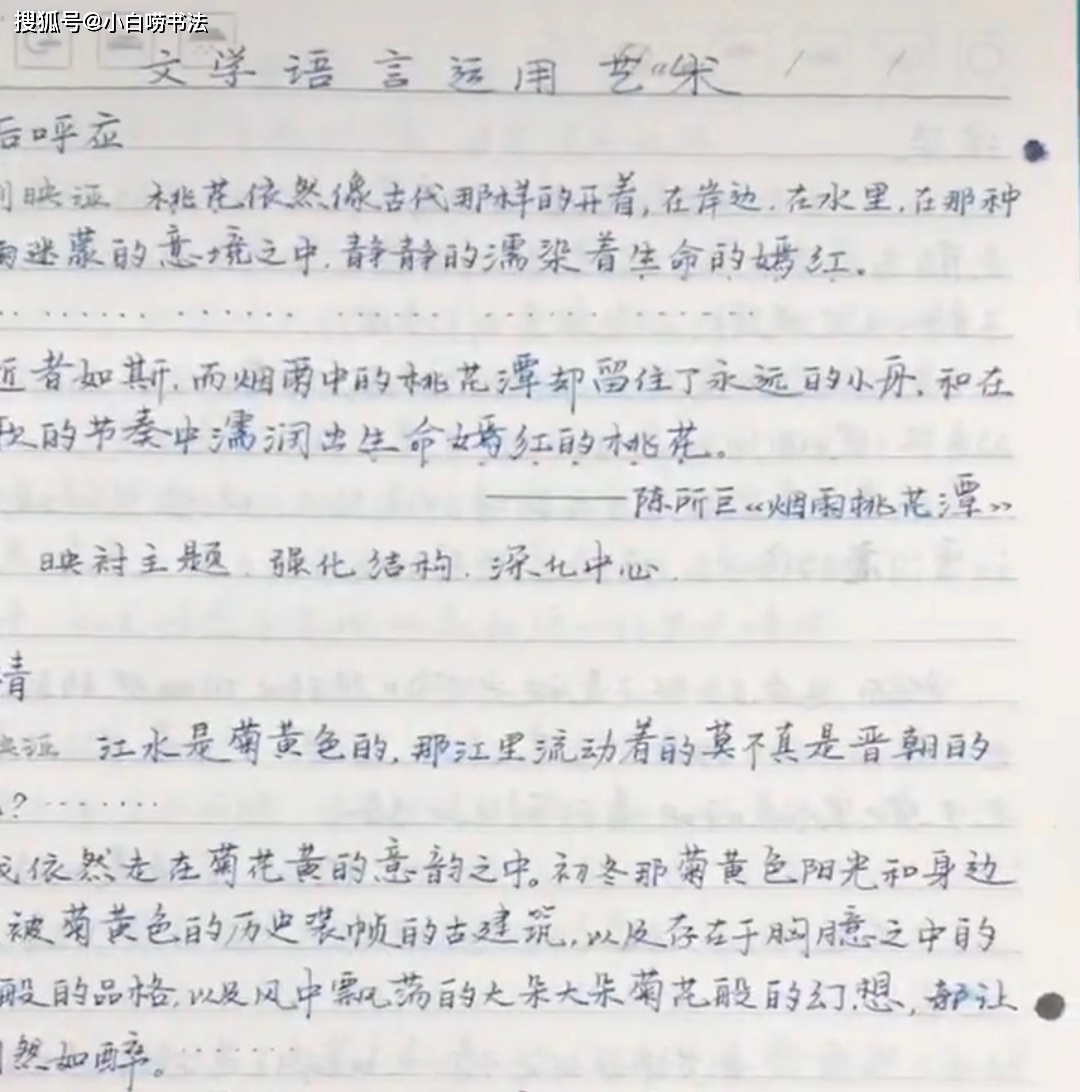 搜狐号@小白唠书法
文学语言运用艺术
后呼应
映证 桃花依然像古代那样的开着,在岸边.在水里.在那种
雨迷蒙的意境之中.静静的濡染着生命的嫣红。
................................
近者如斯.而烟雨中的桃花潭却留住了永远的小舟.和在
的节奏中濡润出生命嫣红的桃花。
——陈所巨《烟雨桃花潭》
映衬主题.强化结构.深化中心.
情
映证 江水是菊黄色的,那江里流动着的莫不真是晋朝的
?.......
依然走在菊花黄的意韵之中。初冬那菊黄色阳光和身边
被菊黄色的历史装帧的古建筑,以及存在于胸臆之中的
般的品格,以及风中飘荡的大朵大朵菊花般的幻想,都让
然如醉。.......